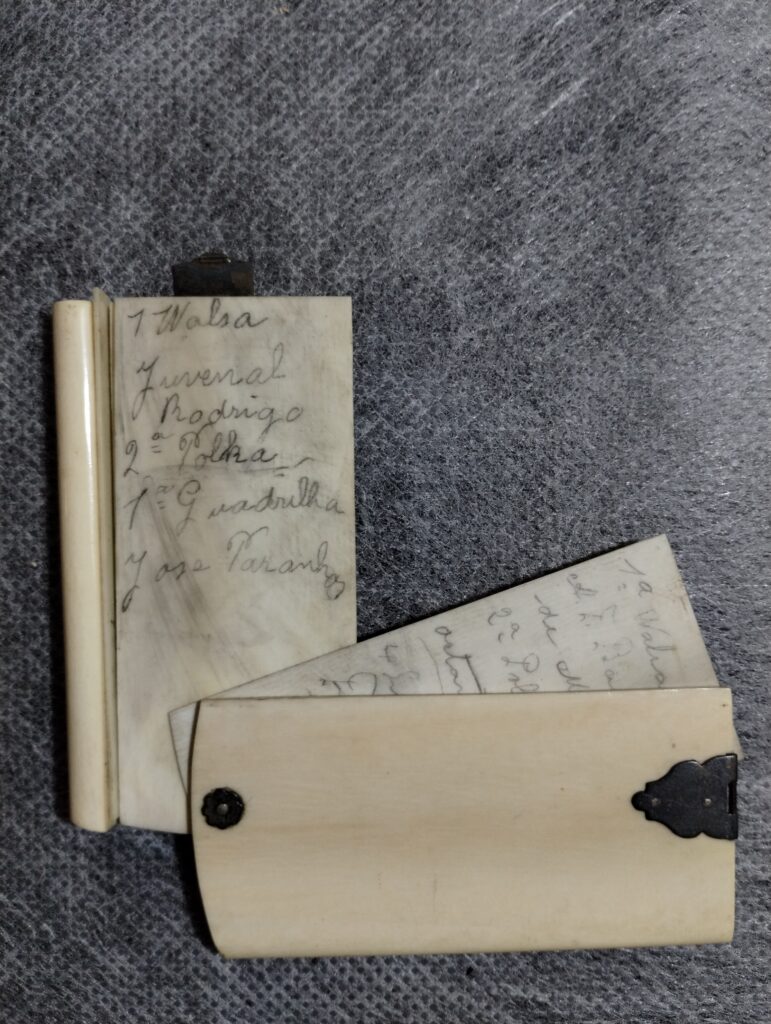 1 Walsa
Juvenal
Rodrigo
2ª Polka
1ª Quadrilha
Jose Paranhos
1ª Walsa
de
2ª Pol